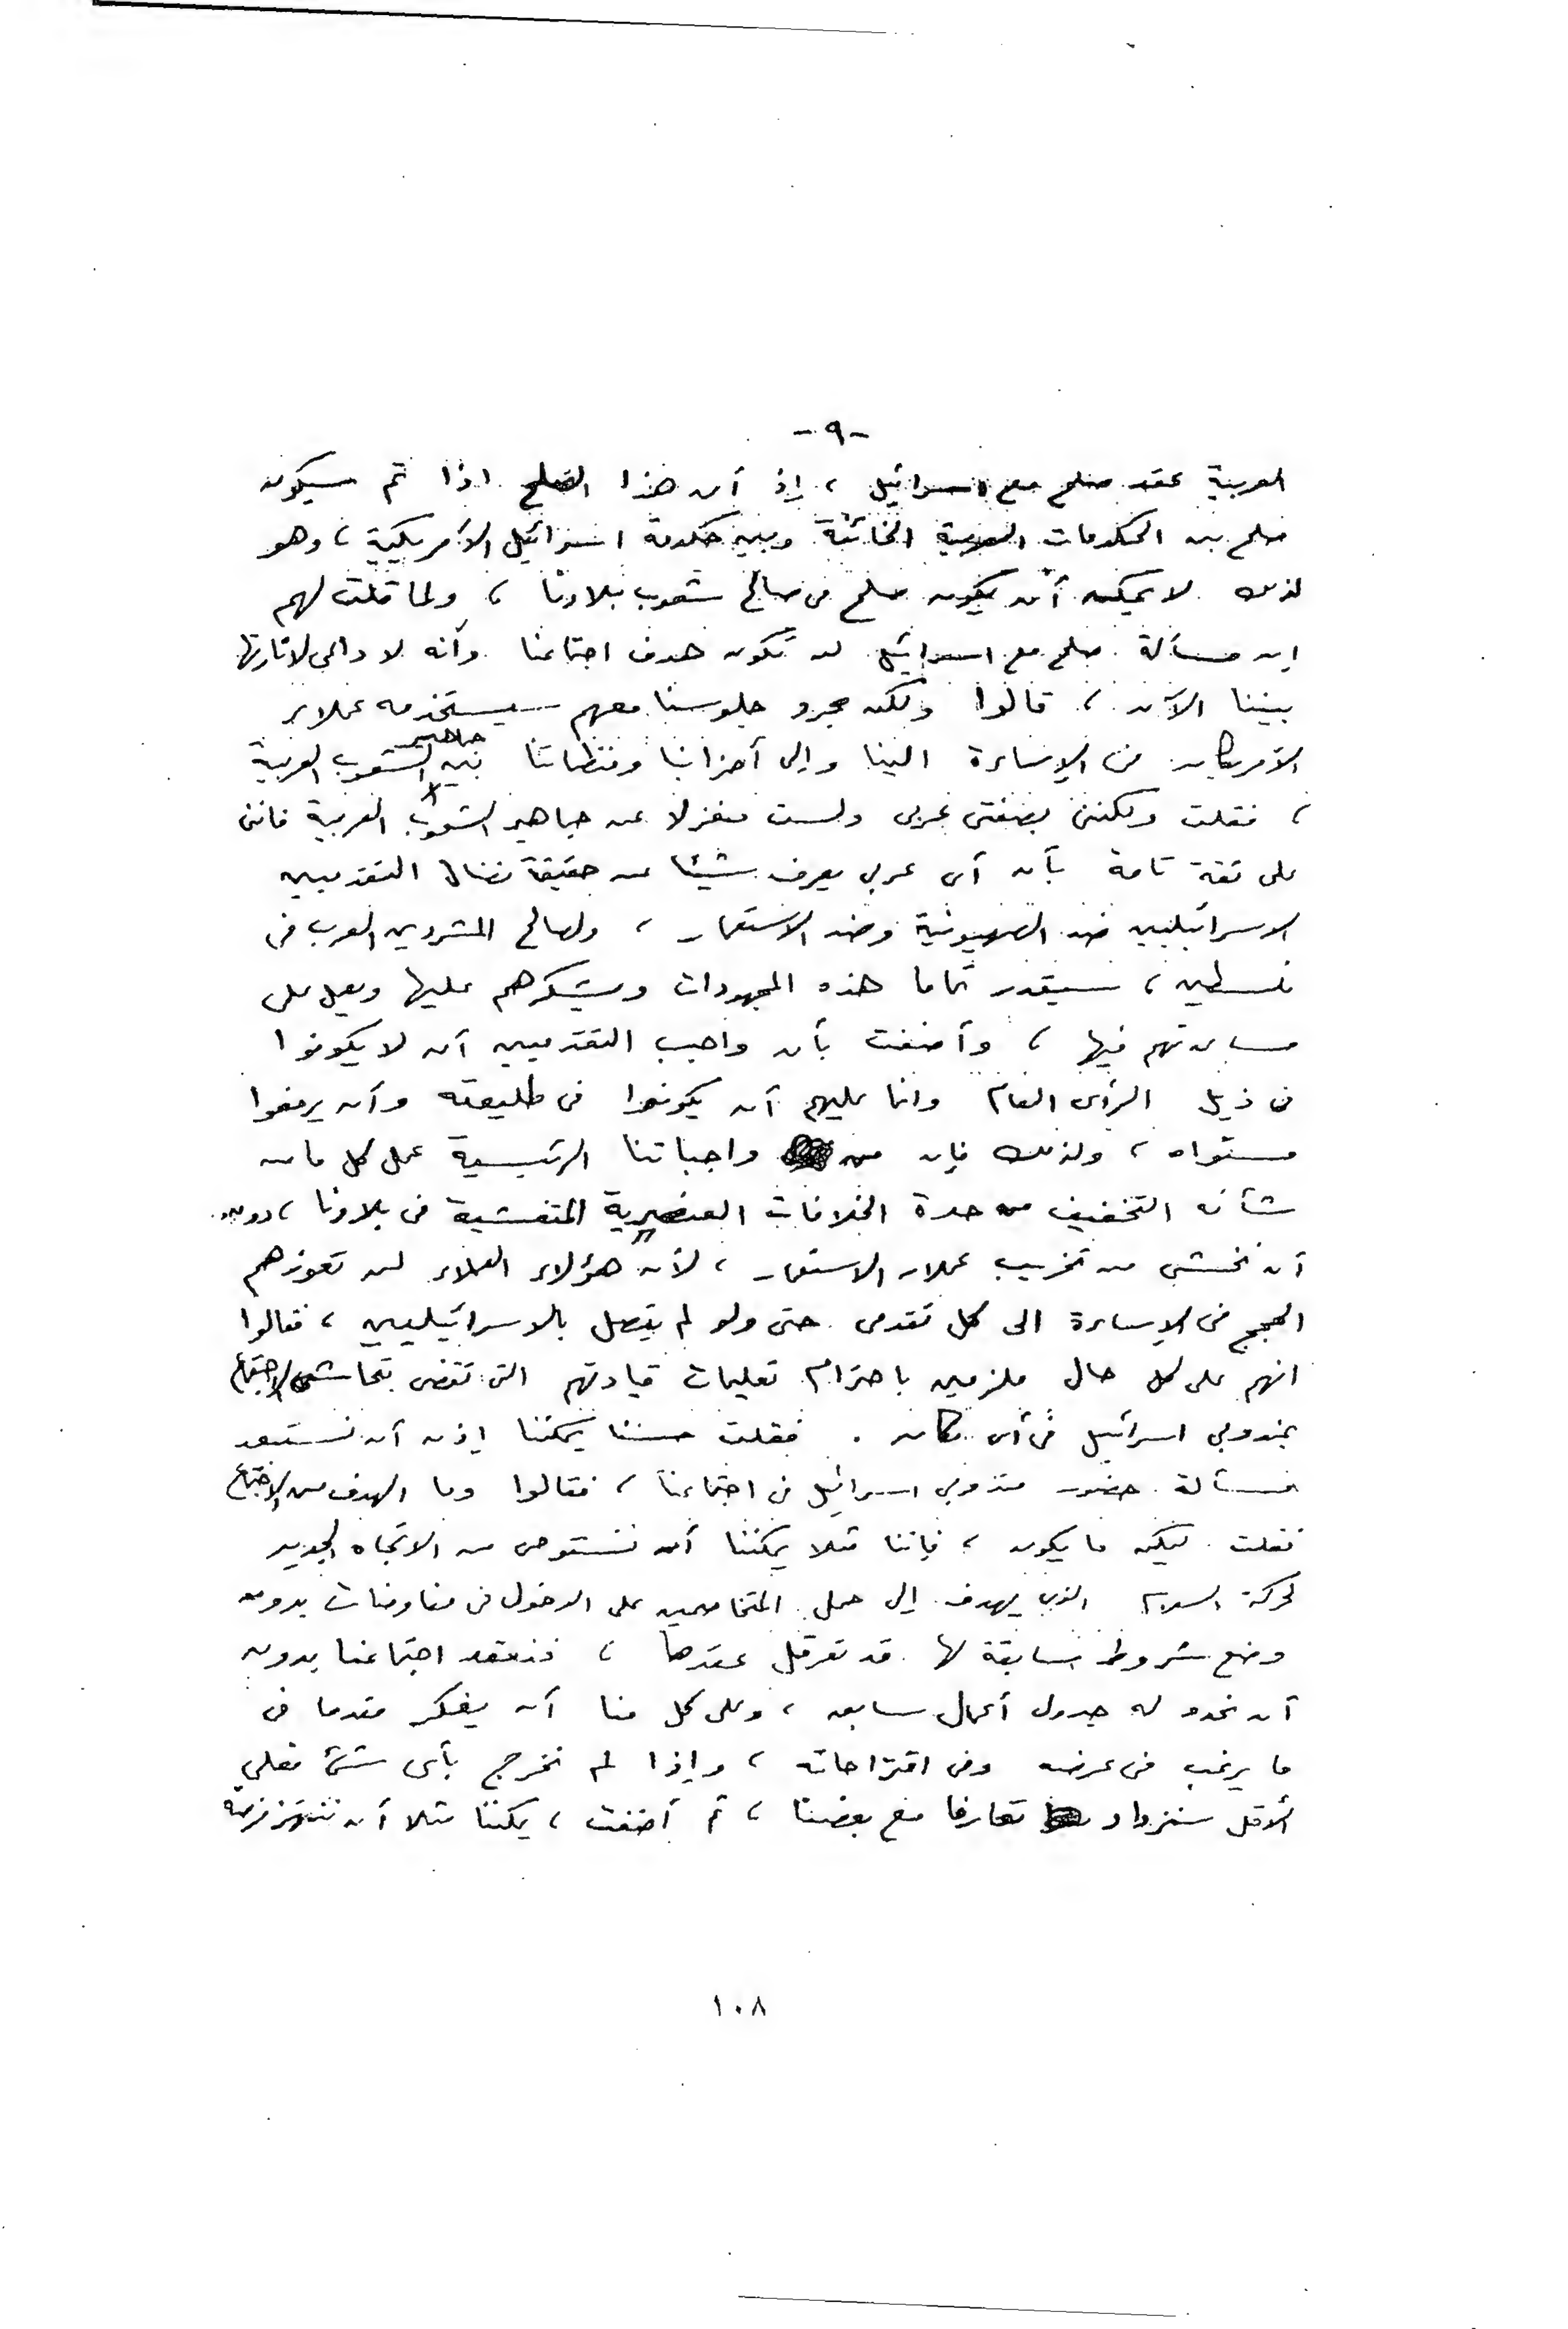 -٩-
العربية عقد صلح مع اسرائيل ، إذ أن هذا الصلح اذا تم سيكون
صلح بين الحكومات العربية الخائنة وبين حكومة اسرائيل الأمريكية ، وهو
لذلك لا يمكن أن يكون صلح فى صالح شعوب بلادنا ، ولما قلت لهم
إن مسألة صلح مع اسرائيل لن تكون هدف اجتماعنا وأنه لا داعى لاثارتها
بيننا الآن ، قالوا ولكن مجرد جلوسنا معهم سيستخدمه عملاء
الأمريكان فى الإساءة الينا وإلى أحزابنا ومنظماتنا بين جماهير الشعوب العربية
، فقلت ولكننى بصفتى عربى ولست منعزلا عن جماهير الشعوب العربية فاننى
على ثقة تامة بأن أى عربى يعرف شيئا عن حقيقة نضال التقدميين
الاسرائيليين ضد الصهيونية وضد الاستعمار ، ولصالح المشردين العرب فى
فلسطين ، سيقدر تماما هذه المجهودات ويشكرهم عليها ويعمل على
مساعدتهم فيها ، وأضفت بأن واجب التقدميين أن لا يكونوا
فى ذيل الرأى العام وانما عليهم أن يكونوا فى طليعته وأن يرفعوا
مستواه ، ولذلك فإن من واجباتنا الرئيسية عمل كل ما من
شأنه التخفيف من حدة الخلافات العنصرية المتفشية فى بلادنا ، دون
أن نخشى من تخريب عملاء الاستعمار ، لأن هؤلاء العملاء لن تعوزهم
الحجج فى الإساءة الى كل تقدمى حتى ولو لم يتصل بالاسرائيليين ، فقالوا
انهم على كل حال ملزمين باحترام تعليمات قيادتهم التى تقضى بتحاشى الاجتماع
بمندوبى اسرائيل فى أى مكان . فقلت حسنا يمكننا إذن أن نستبعد
مسألة حضور مندوبى اسرائيل فى اجتماعنا ، فقالوا وما الهدف من الاجتماع
فقلت ليكن ما يكون ، فإننا مثلا يمكننا أن نستوحى من الاتجاه الجديد
لحركة السلام الذى يهدف إلى حمل المتخاصمين على الدخول فى مفاوضات بدون
وضع شروط سابقة لها قد تعرقل عقدها ، فنعقد اجتماعنا بدون
أن نحدد له جدول أعمال سابق ، وعلى كل منا أن يفكر مقدما فى
ما يرغب فى عرضه وفى اقتراحاته ، وإذا لم نخرج بأى شئ فعلى
الأقل سنزداد تعارفا مع بعضنا ، ثم أضفت ، يمكننا مثلا أن ننتهز فرصة
١٠٨